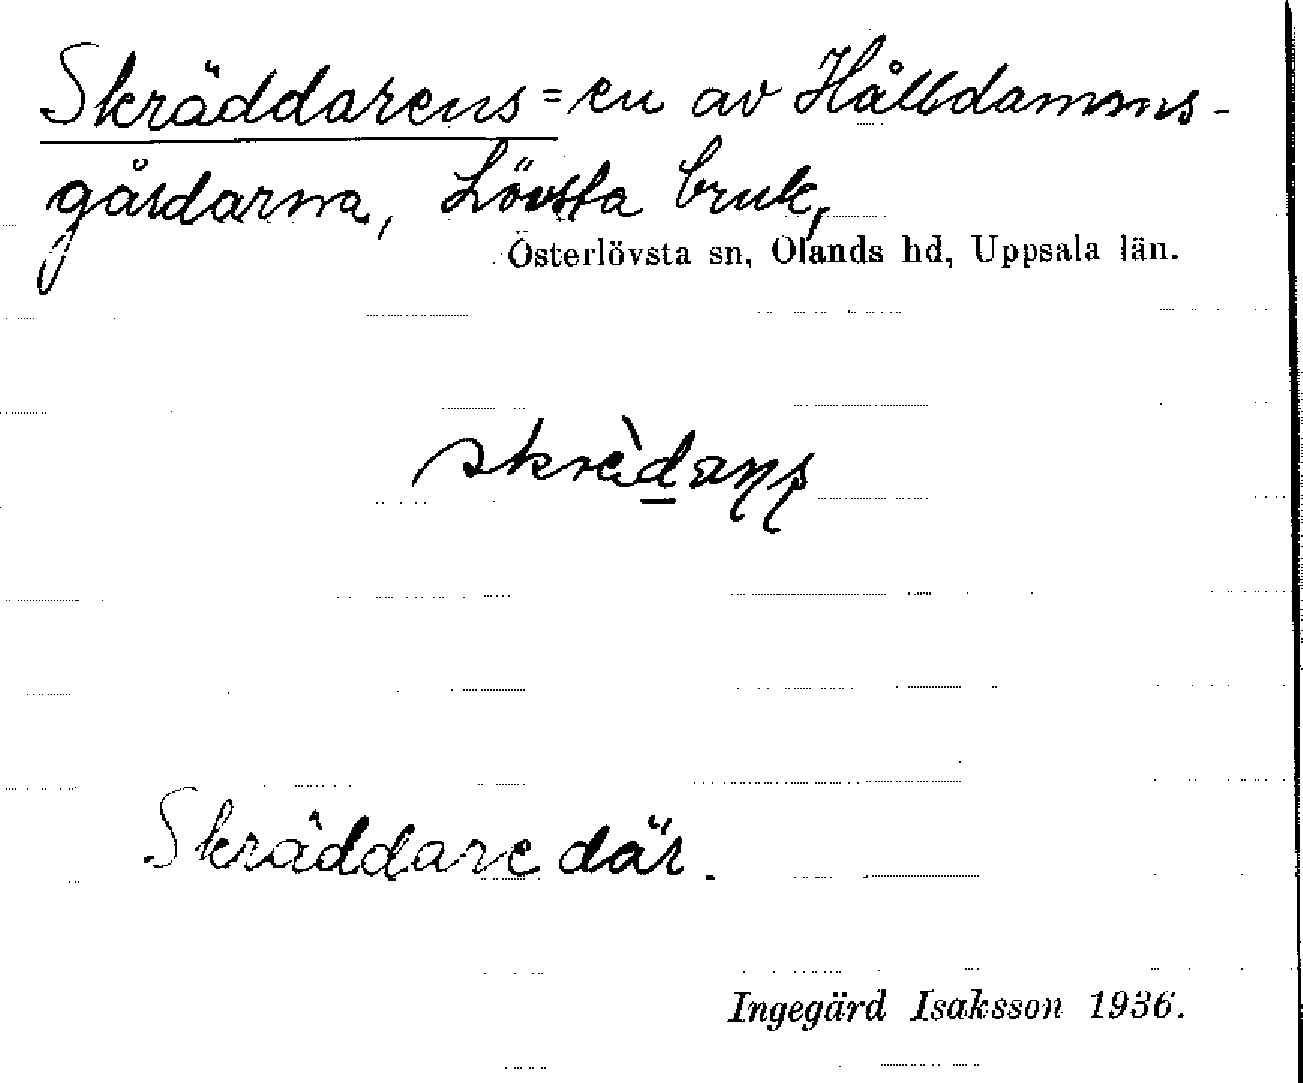 Skräddarens = en av Hålldamms-
gårdarna, Lövsta bruk,
Österlövsta sn, Olands hd, Uppsala län.
Skräddare där.
Ingegärd Isaksson 1936.